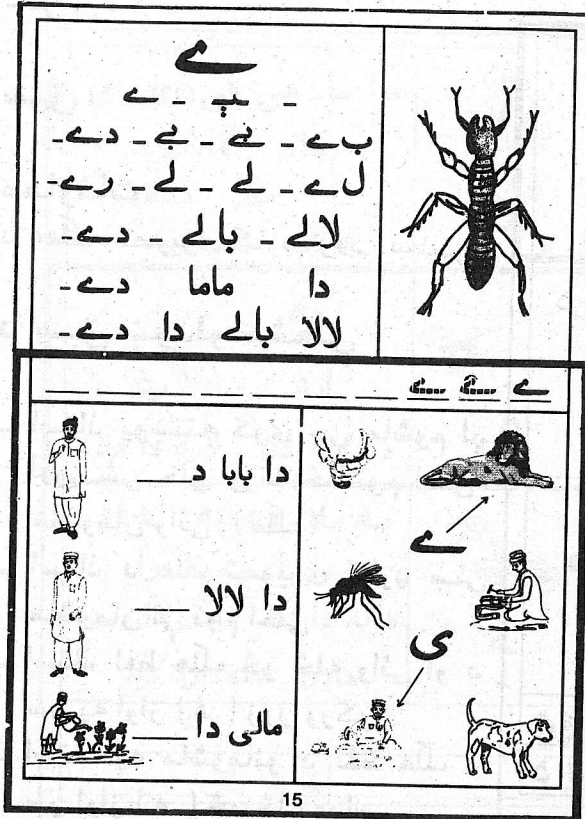 ے
ب ے - بے - بے - دے -
ل ے - لے - لے - رے -
لالے - بالے - دے -
دا ماما دے -
لالا بالے دا دے -
ے ...ے ...ے _ _ _ _ _ _ _ _ _
دا بابا د____
دا لالا ____
مالی دا ____
ے
ی
15